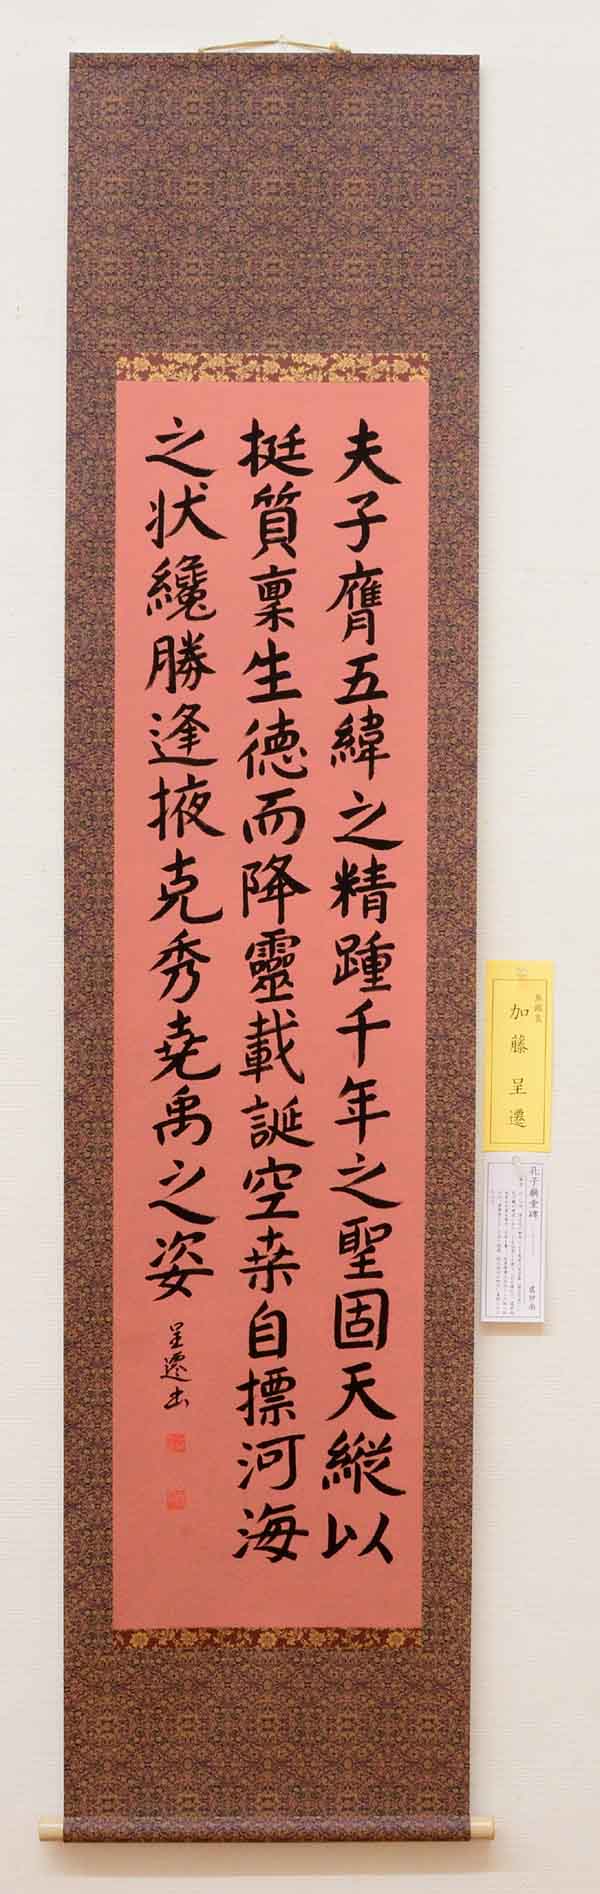 夫子膺五緯之精踵千年之聖固天縦以
挺質稟生徳而降靈載誕空桒自摽河海
之状纔勝逢掖克秀尭禹之姿
呈遷书
加藤 呈遷
孔子廟堂碑
虞世南